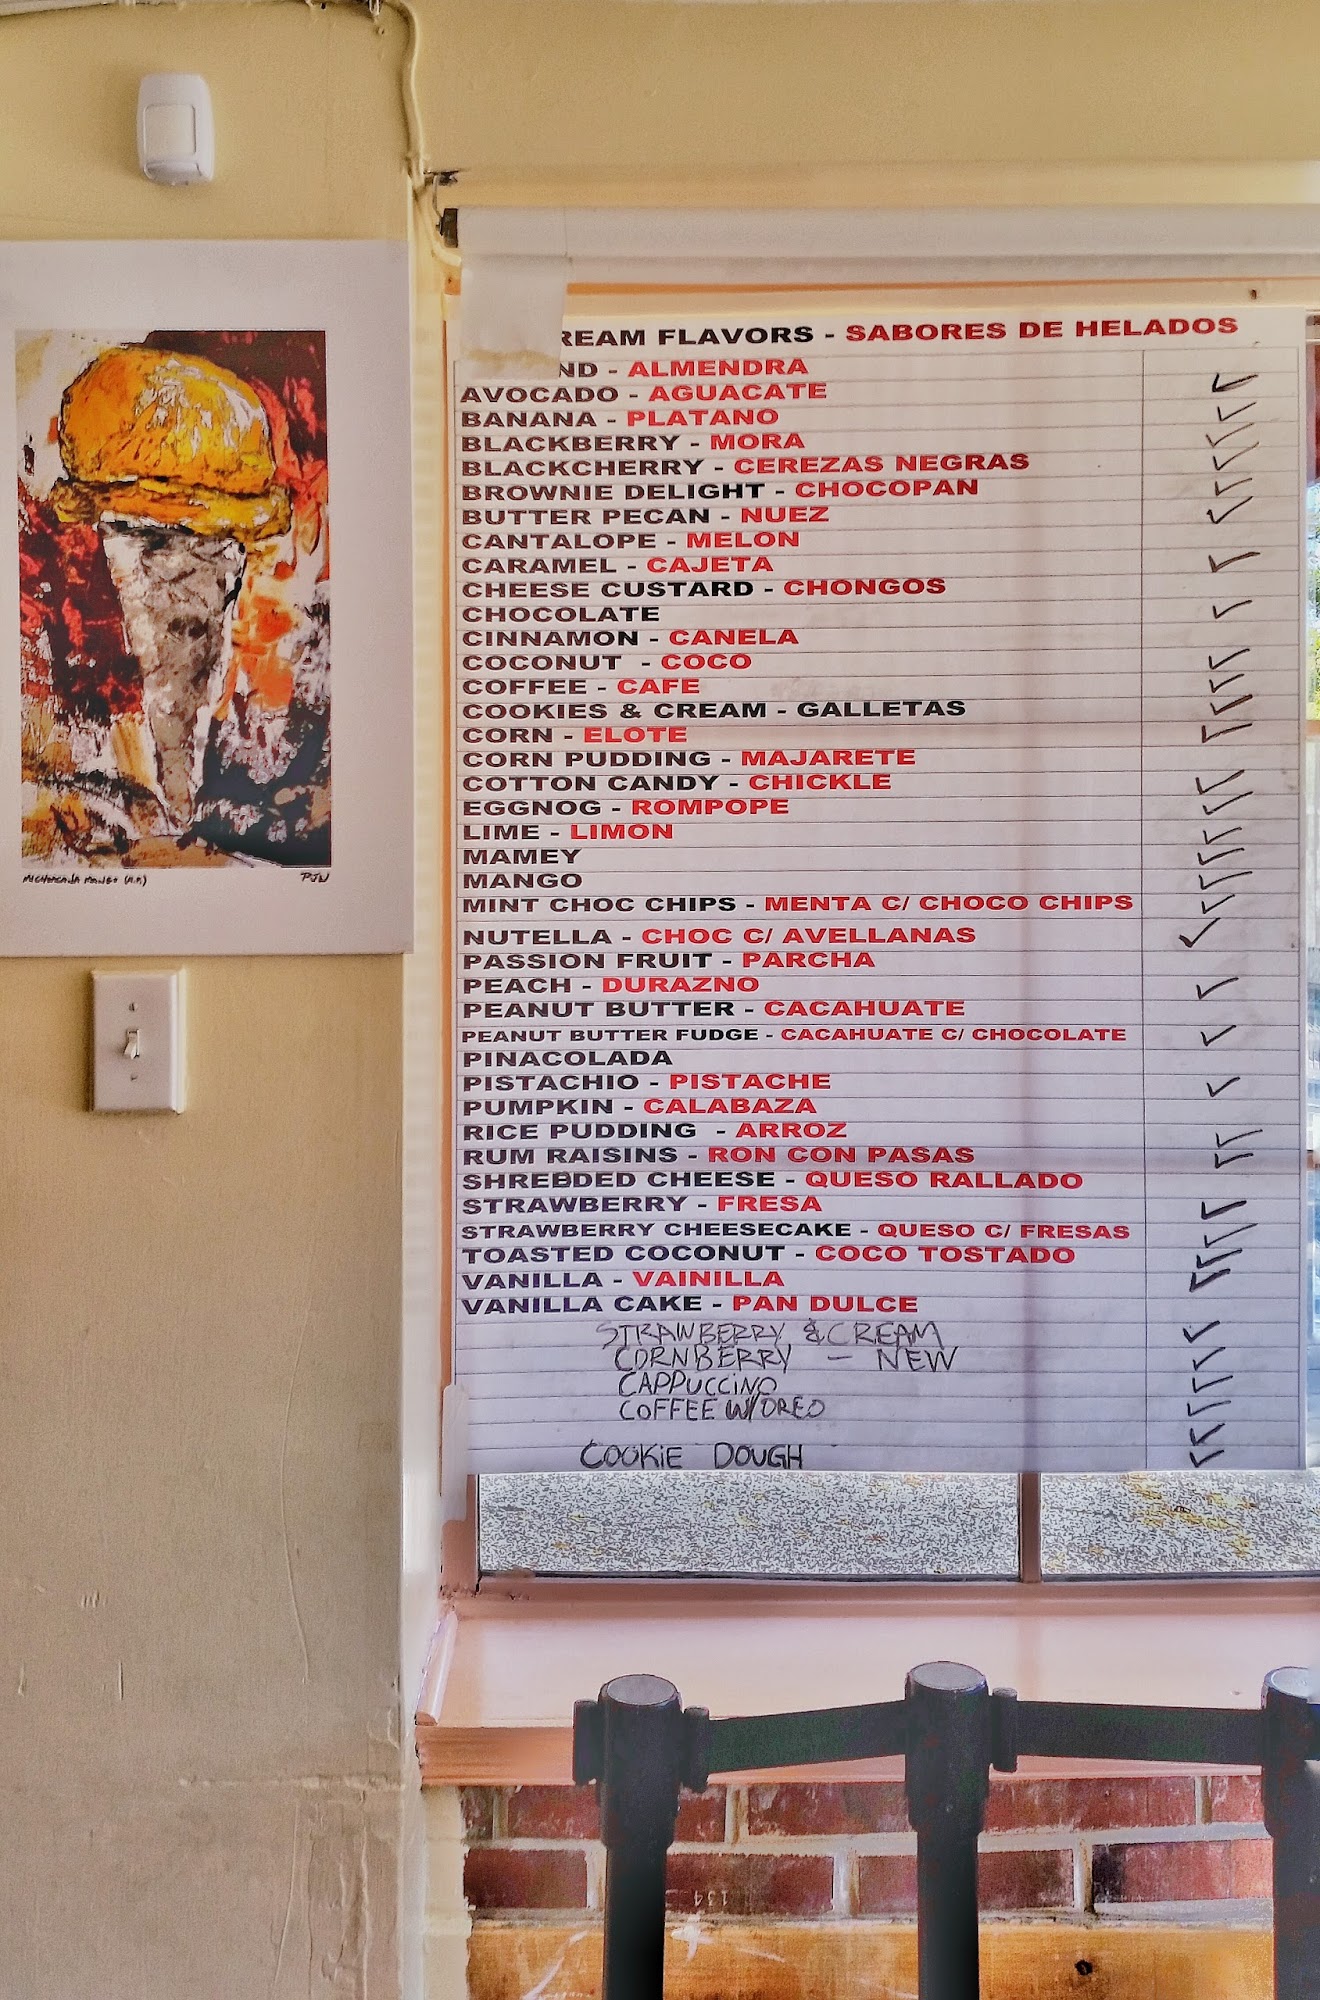 REAM FLAVORS - SABORES DE HELADOS
ND - ALMENDRA
AVOCADO - AGUACATE
BANANA - PLATANO
BLACKBERRY - MORA
BLACKCHERRY - CEREZAS NEGRAS
BROWNIE DELIGHT - CHOCOPAN
BUTTER PECAN - NUEZ
CANTALOPE - MELON
CARAMEL - CAJETA
CHEESE CUSTARD - CHONGOS
CHOCOLATE
CINNAMON - CANELA
COCONUT - COCO
COFFEE - CAFE
COOKIES & CREAM - GALLETAS
CORN - ELOTE
CORN PUDDING - MAJARETE
COTTON CANDY - CHICKLE
EGGNOG - ROMPOPE
LIME - LIMON
MAMEY
MANGO
MINT CHOC CHIPS - MENTA C/ CHOCO CHIPS
NUTELLA - CHOC C/ AVELLANAS
PASSION FRUIT - PARCHA
PEACH - DURAZNO
PEANUT BUTTER - CACAHUATE
PEANUT BUTTER FUDGE - CACAHUATE C/ CHOCOLATE
PINACOLADA
PISTACHIO - PISTACHE
PUMPKIN - CALABAZA
RICE PUDDING - ARROZ
RUM RAISINS - RON CON PASAS
SHREDDED CHEESE - QUESO RALLADO
STRAWBERRY - FRESA
STRAWBERRY CHEESECAKE - QUESO C/ FRESAS
TOASTED COCONUT - COCO TOSTADO
VANILLA - VAINILLA
VANILLA CAKE - PAN DULCE
STRAWBERRY & CREAM
CORNBERRY - NEW
CAPPUCCINO
COFFEE W/OREO
COOKIE DOUGH
MICHOACANA MANGO (A.P.)
PJW
134